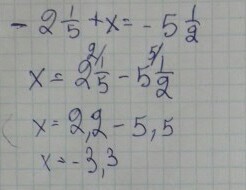 - 2 1/5 + x = - 5 1/2
x = 2 2/1/5 - 5 5/1/2
x = 2,2 - 5,5
x = -3,3